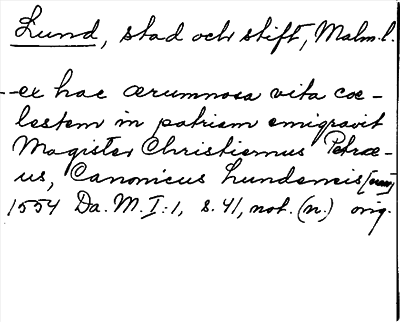 Lund, stad och stift, Malm.l.
--ex hac ærumnosa vita coe-
lestem in patriam emigravit
Magister Christiernus Petræ-
us, Canonicus Lundensis
1554 Da. M. I:1, s. 41, not. (n.) orig.